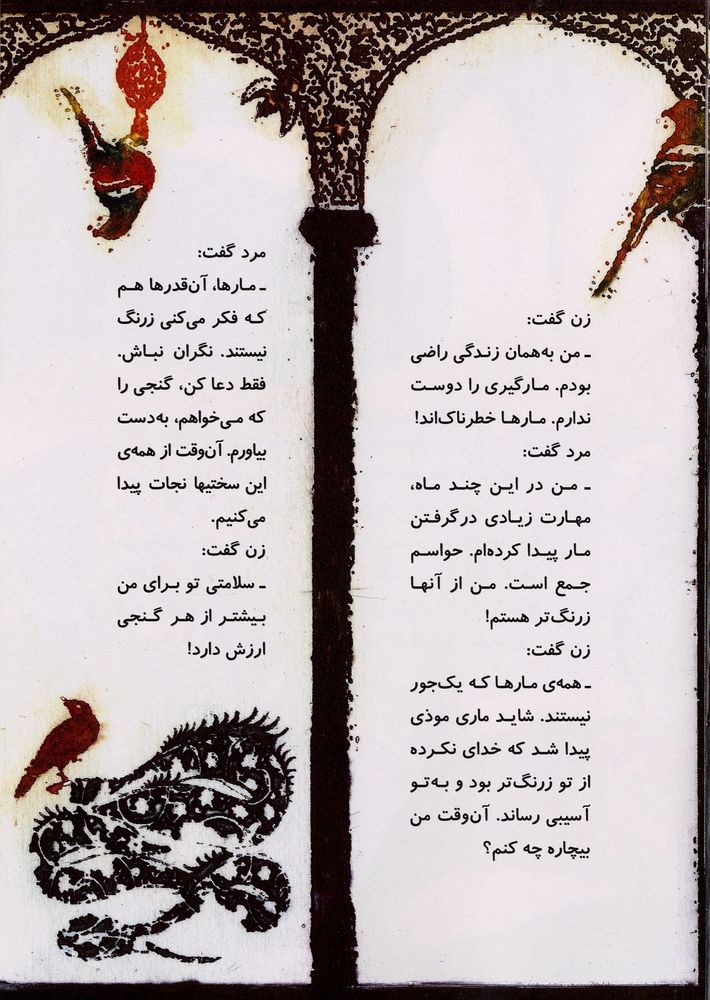 زن گفت:
ـ من به‌همان زندگی راضی
بودم. مارگیری را دوست
ندارم. مارها خطرناک‌اند!
مرد گفت:
ـ من در این چند ماه،
مهارت زیادی درگرفتن
مار پیدا کرده‌ام. حواسم
جمع است. من از آنها
زرنگ‌تر هستم!
زن گفت:
ـ همه‌ی مارها که یک‌جور
نیستند. شاید ماری موذی
پیدا شد که خدای نکرده
از تو زرنگ‌تر بود و به‌تو
آسیبی رساند. آن‌وقت من
بیچاره چه کنم؟
مرد گفت:
ـ مارها، آن‌قدرها هم
که فکر می‌کنی زرنگ
نیستند. نگران نباش.
فقط دعا کن، گنجی را
که می‌خواهم، به‌دست
بیاورم. آن‌وقت از همه‌ی
این سختیها نجات پیدا
می‌کنیم.
زن گفت:
ـ سلامتی تو برای من
بیشتر از هر گنجی
ارزش دارد!